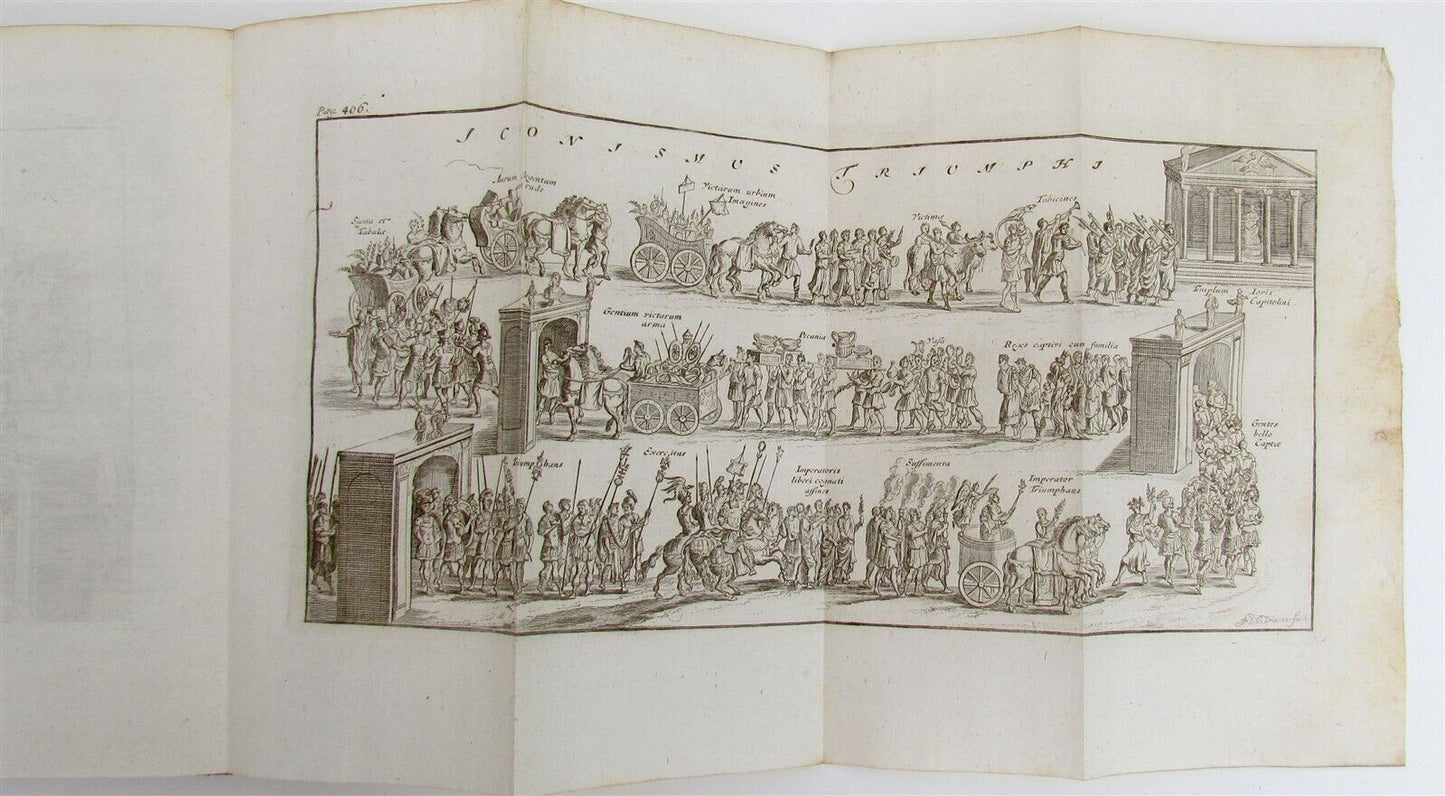 Pag. 406.
ICONISMUS TRIUMPHI
Aurum Argentum
rude
Victarum urbium
Imagines
Victimæ
Tubicines
Signa et
Tabulæ
Templum Iovis
Capitolini
Gentium victarum
arma
Pecunia
Vasa
Reges captivi cum familia
Gentes
bello
Captæ
Triumphans
Exercitus
Imperatoris
liberi cognati
affines
Suffimenta
Imperator
Triumphans